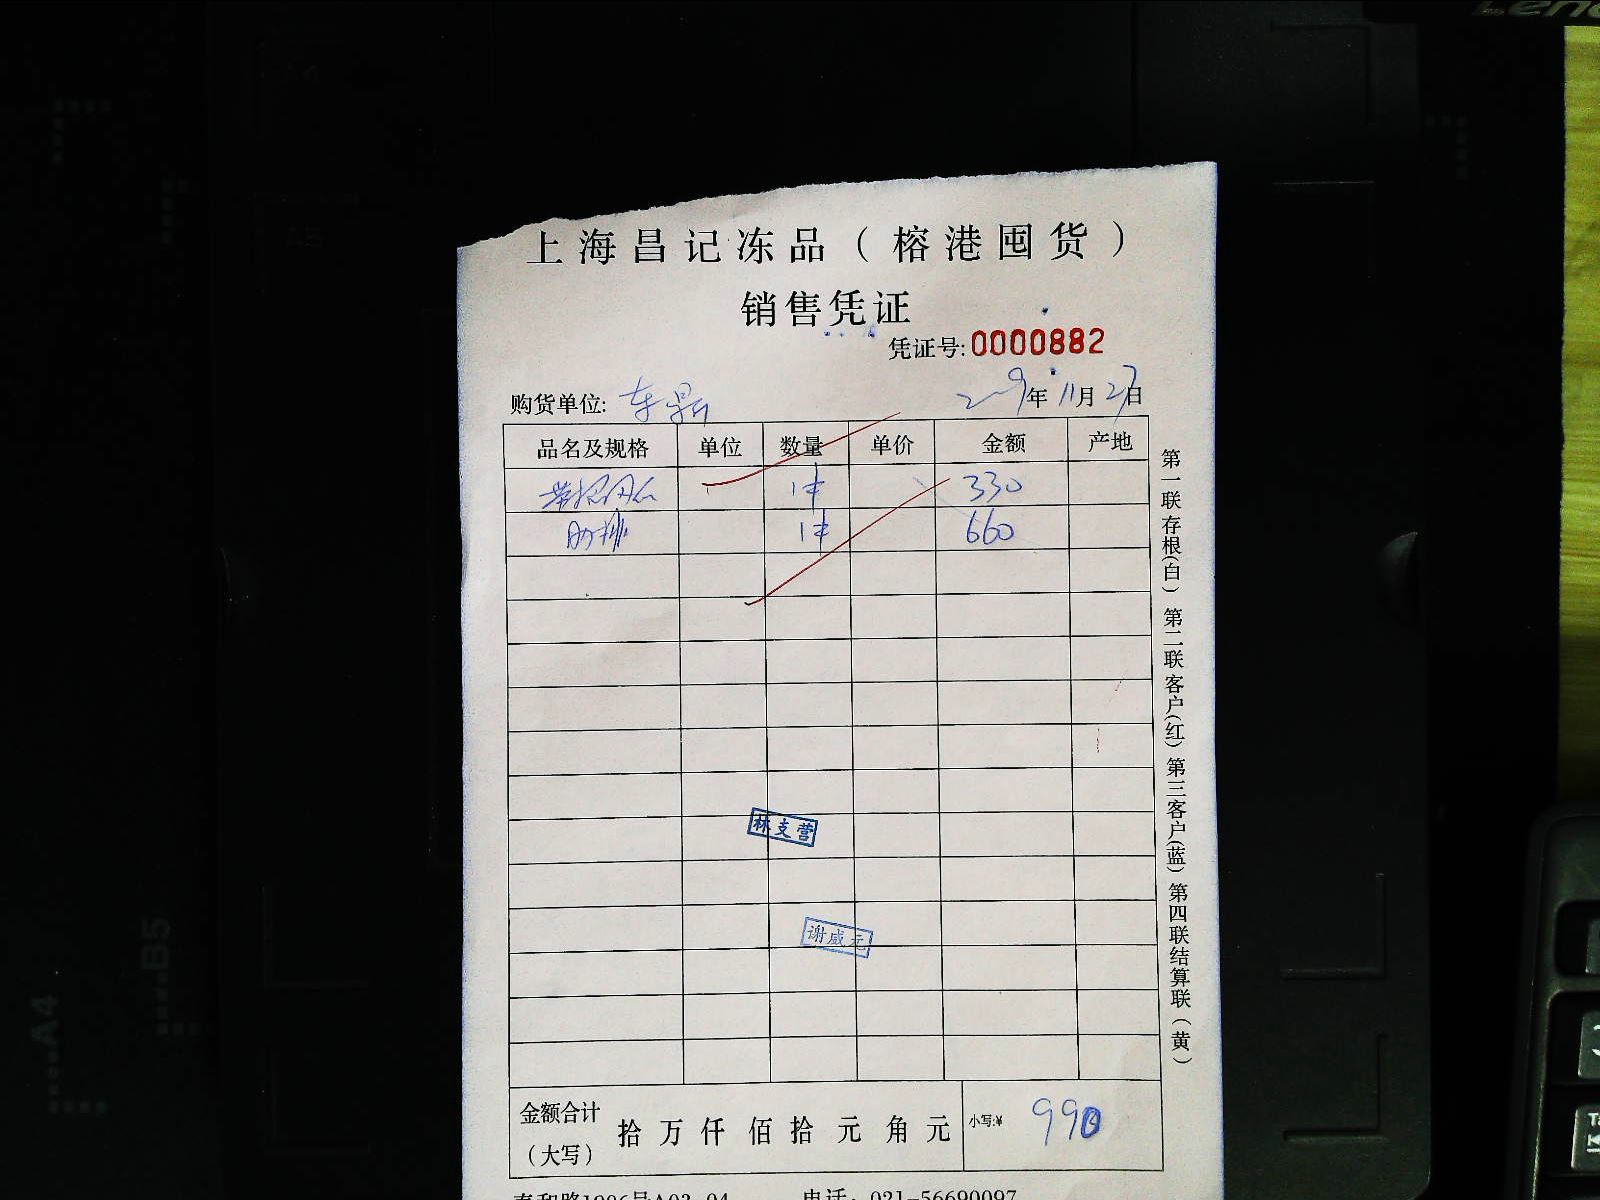 Leno
A4
A5
上海昌记冻品（榕港囤货）
销售凭证
凭证号:0000882
购货单位: 东 年11月27日
品名及规格 单位 数量 单价 金额 产地
1 330
肋排 1 660
林支营
谢威元
金额合计（大写） 拾万仟佰拾元角元 小写:¥ 990
泰和路1986号A03-04 电话：021-56690097
第一联存根(白) 第二联客户(红) 第三客户(蓝) 第四联结算联（黄）
B5
A4